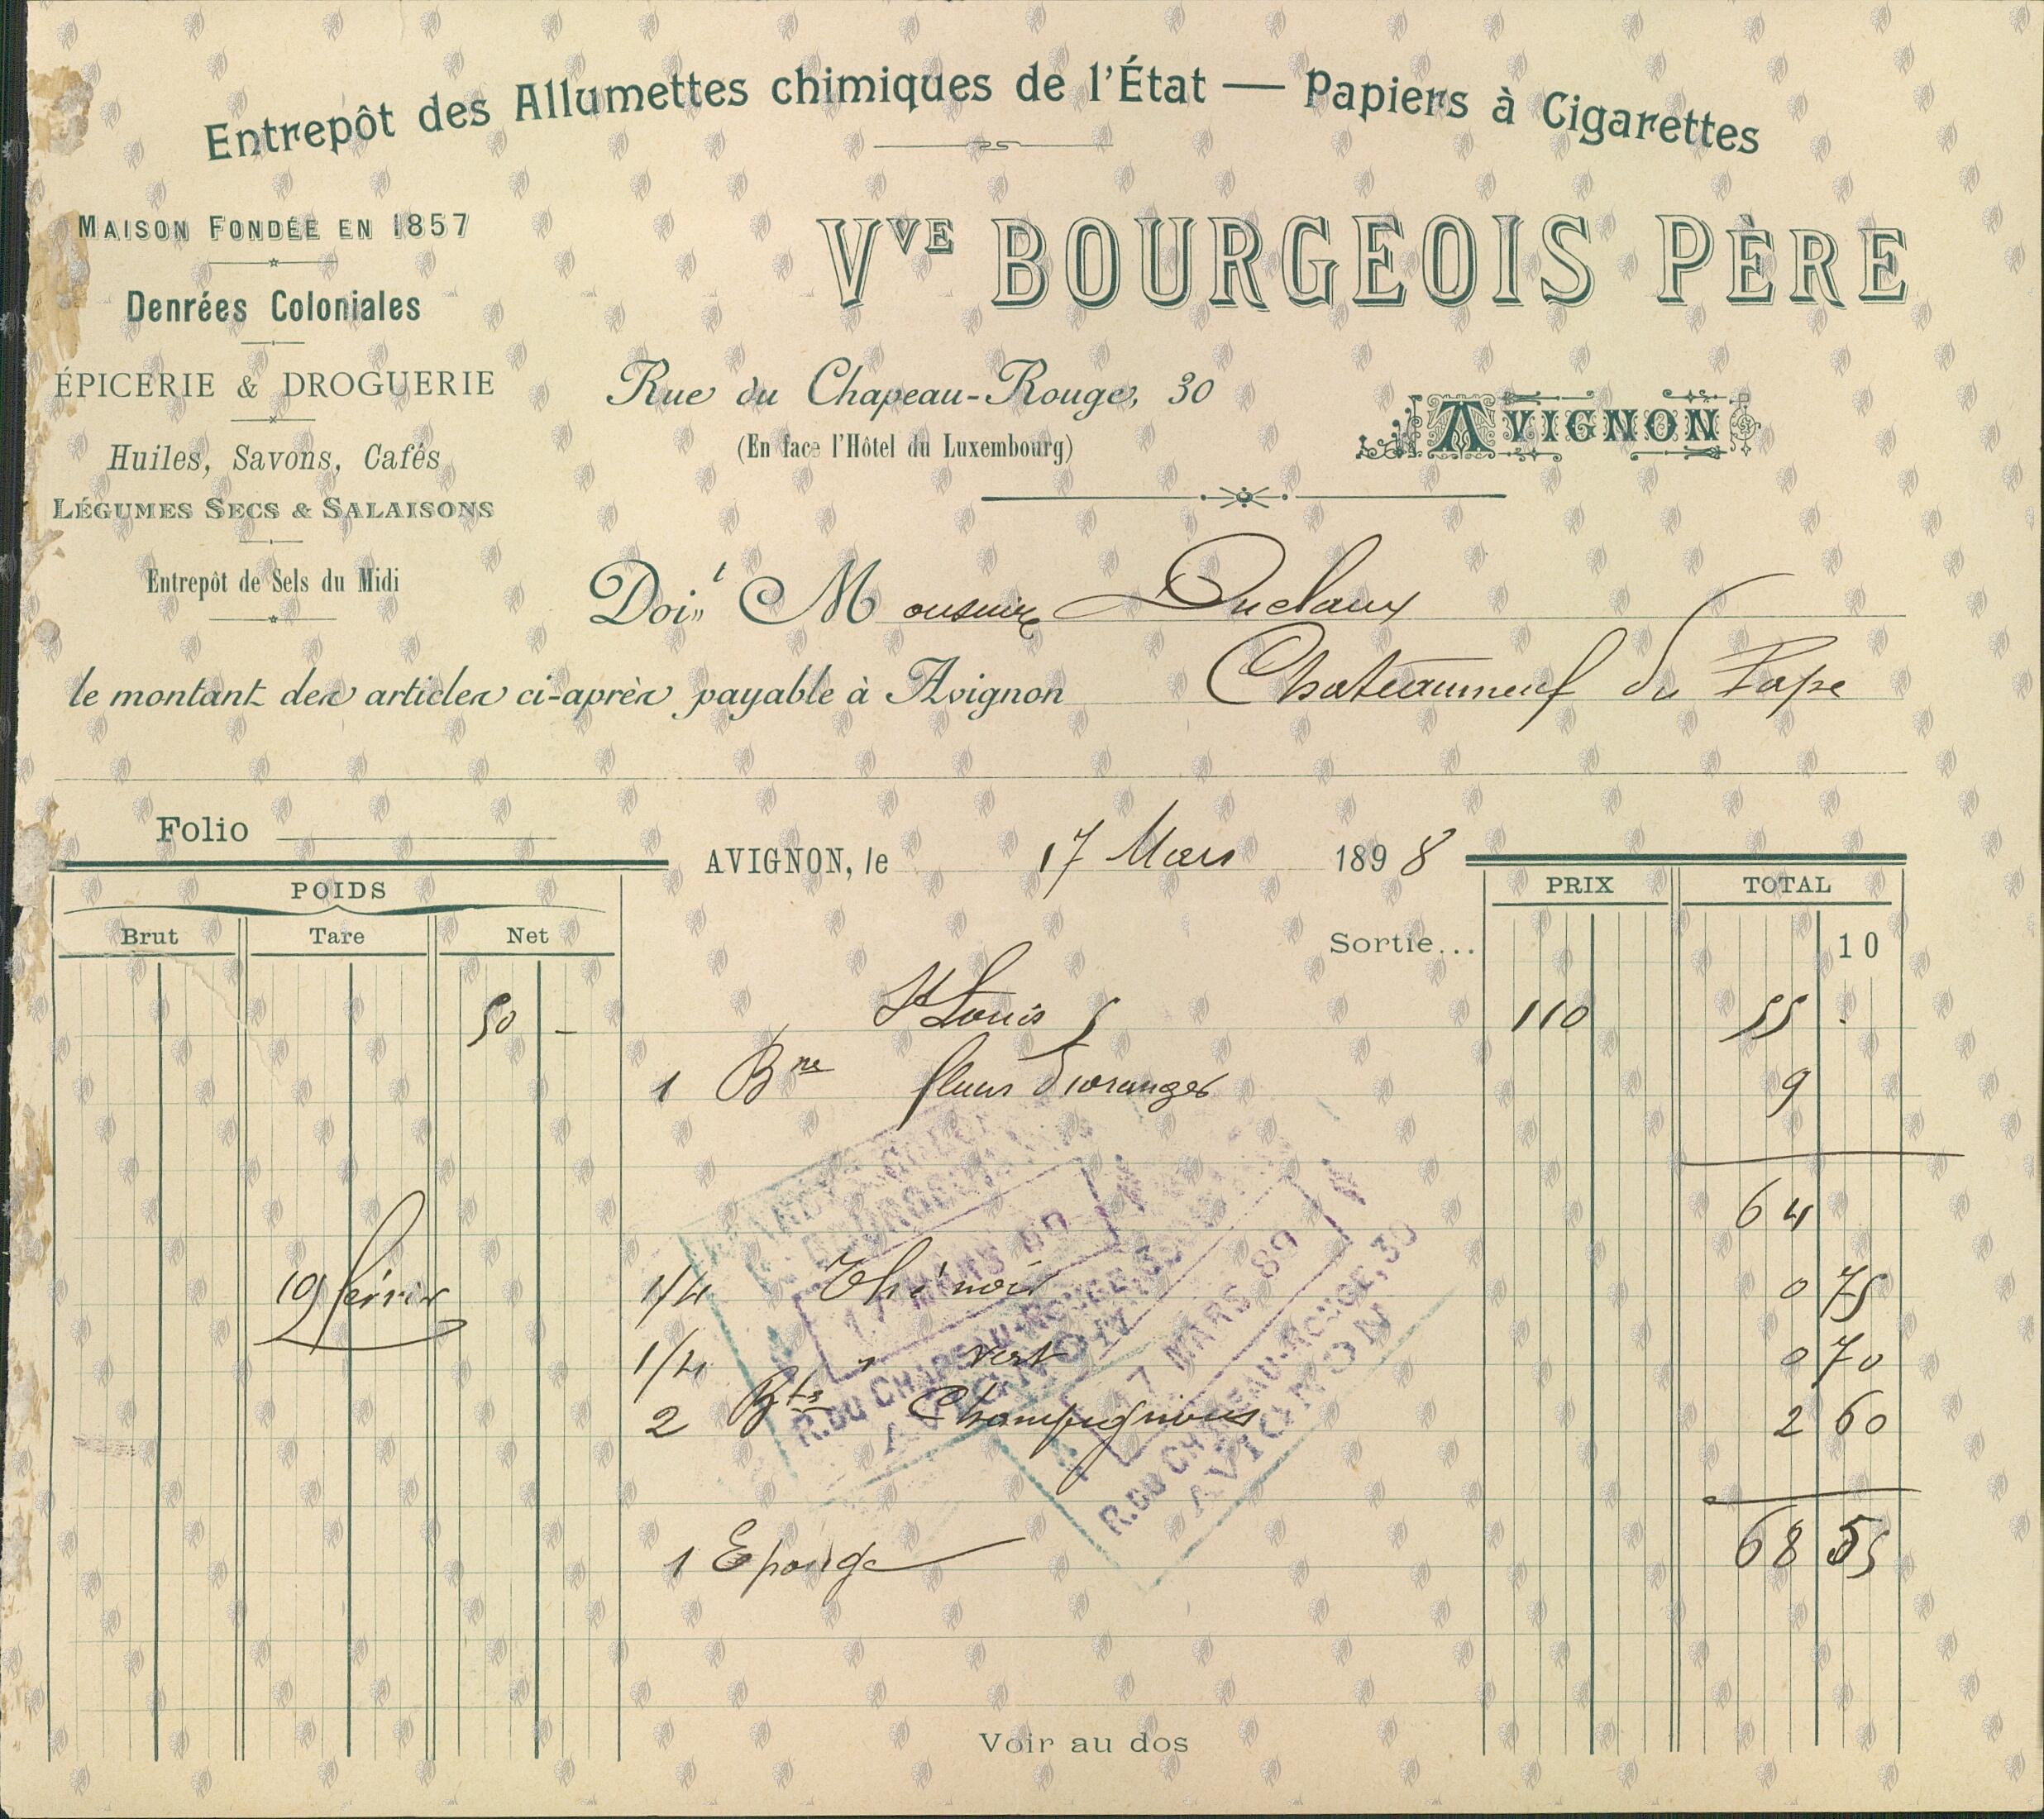 Entrepôt des Allumettes chimiques de l'État — Papiers à Cigarettes
MAISON FONDÉE EN 1857
Denrées Coloniales
ÉPICERIE & DROGUERIE
Huiles, Savons, Cafés
LÉGUMES SECS & SALAISONS
Entrepôt de Sels du Midi
Vve BOURGEOIS PÈRE
Rue du Chapeau-Rouge, 30
(En face l'Hôtel du Luxembourg)
AVIGNON
Doit Monsieur Duclaux
le montant des articles ci-après payable à Avignon Chateauneuf du Pape
Folio
AVIGNON, le 17 Mars 1898
POIDS PRIX TOTAL
Brut Tare Net
Sortie... 10
50 - St Louis 110 55 .
1 Bne fleurs d'oranges 9
64
19 février 1/4 Thé noir 0 75
1/4 " vert 0 70
2 Btes Champignons 2 60
68 55
1 Eponge
17 MARS
R. DU CHAPEAU-ROUGE, 30
AVIGNON
17 MARS 89
R. DU CHAPEAU-ROUGE, 30
AVIGNON
Voir au dos